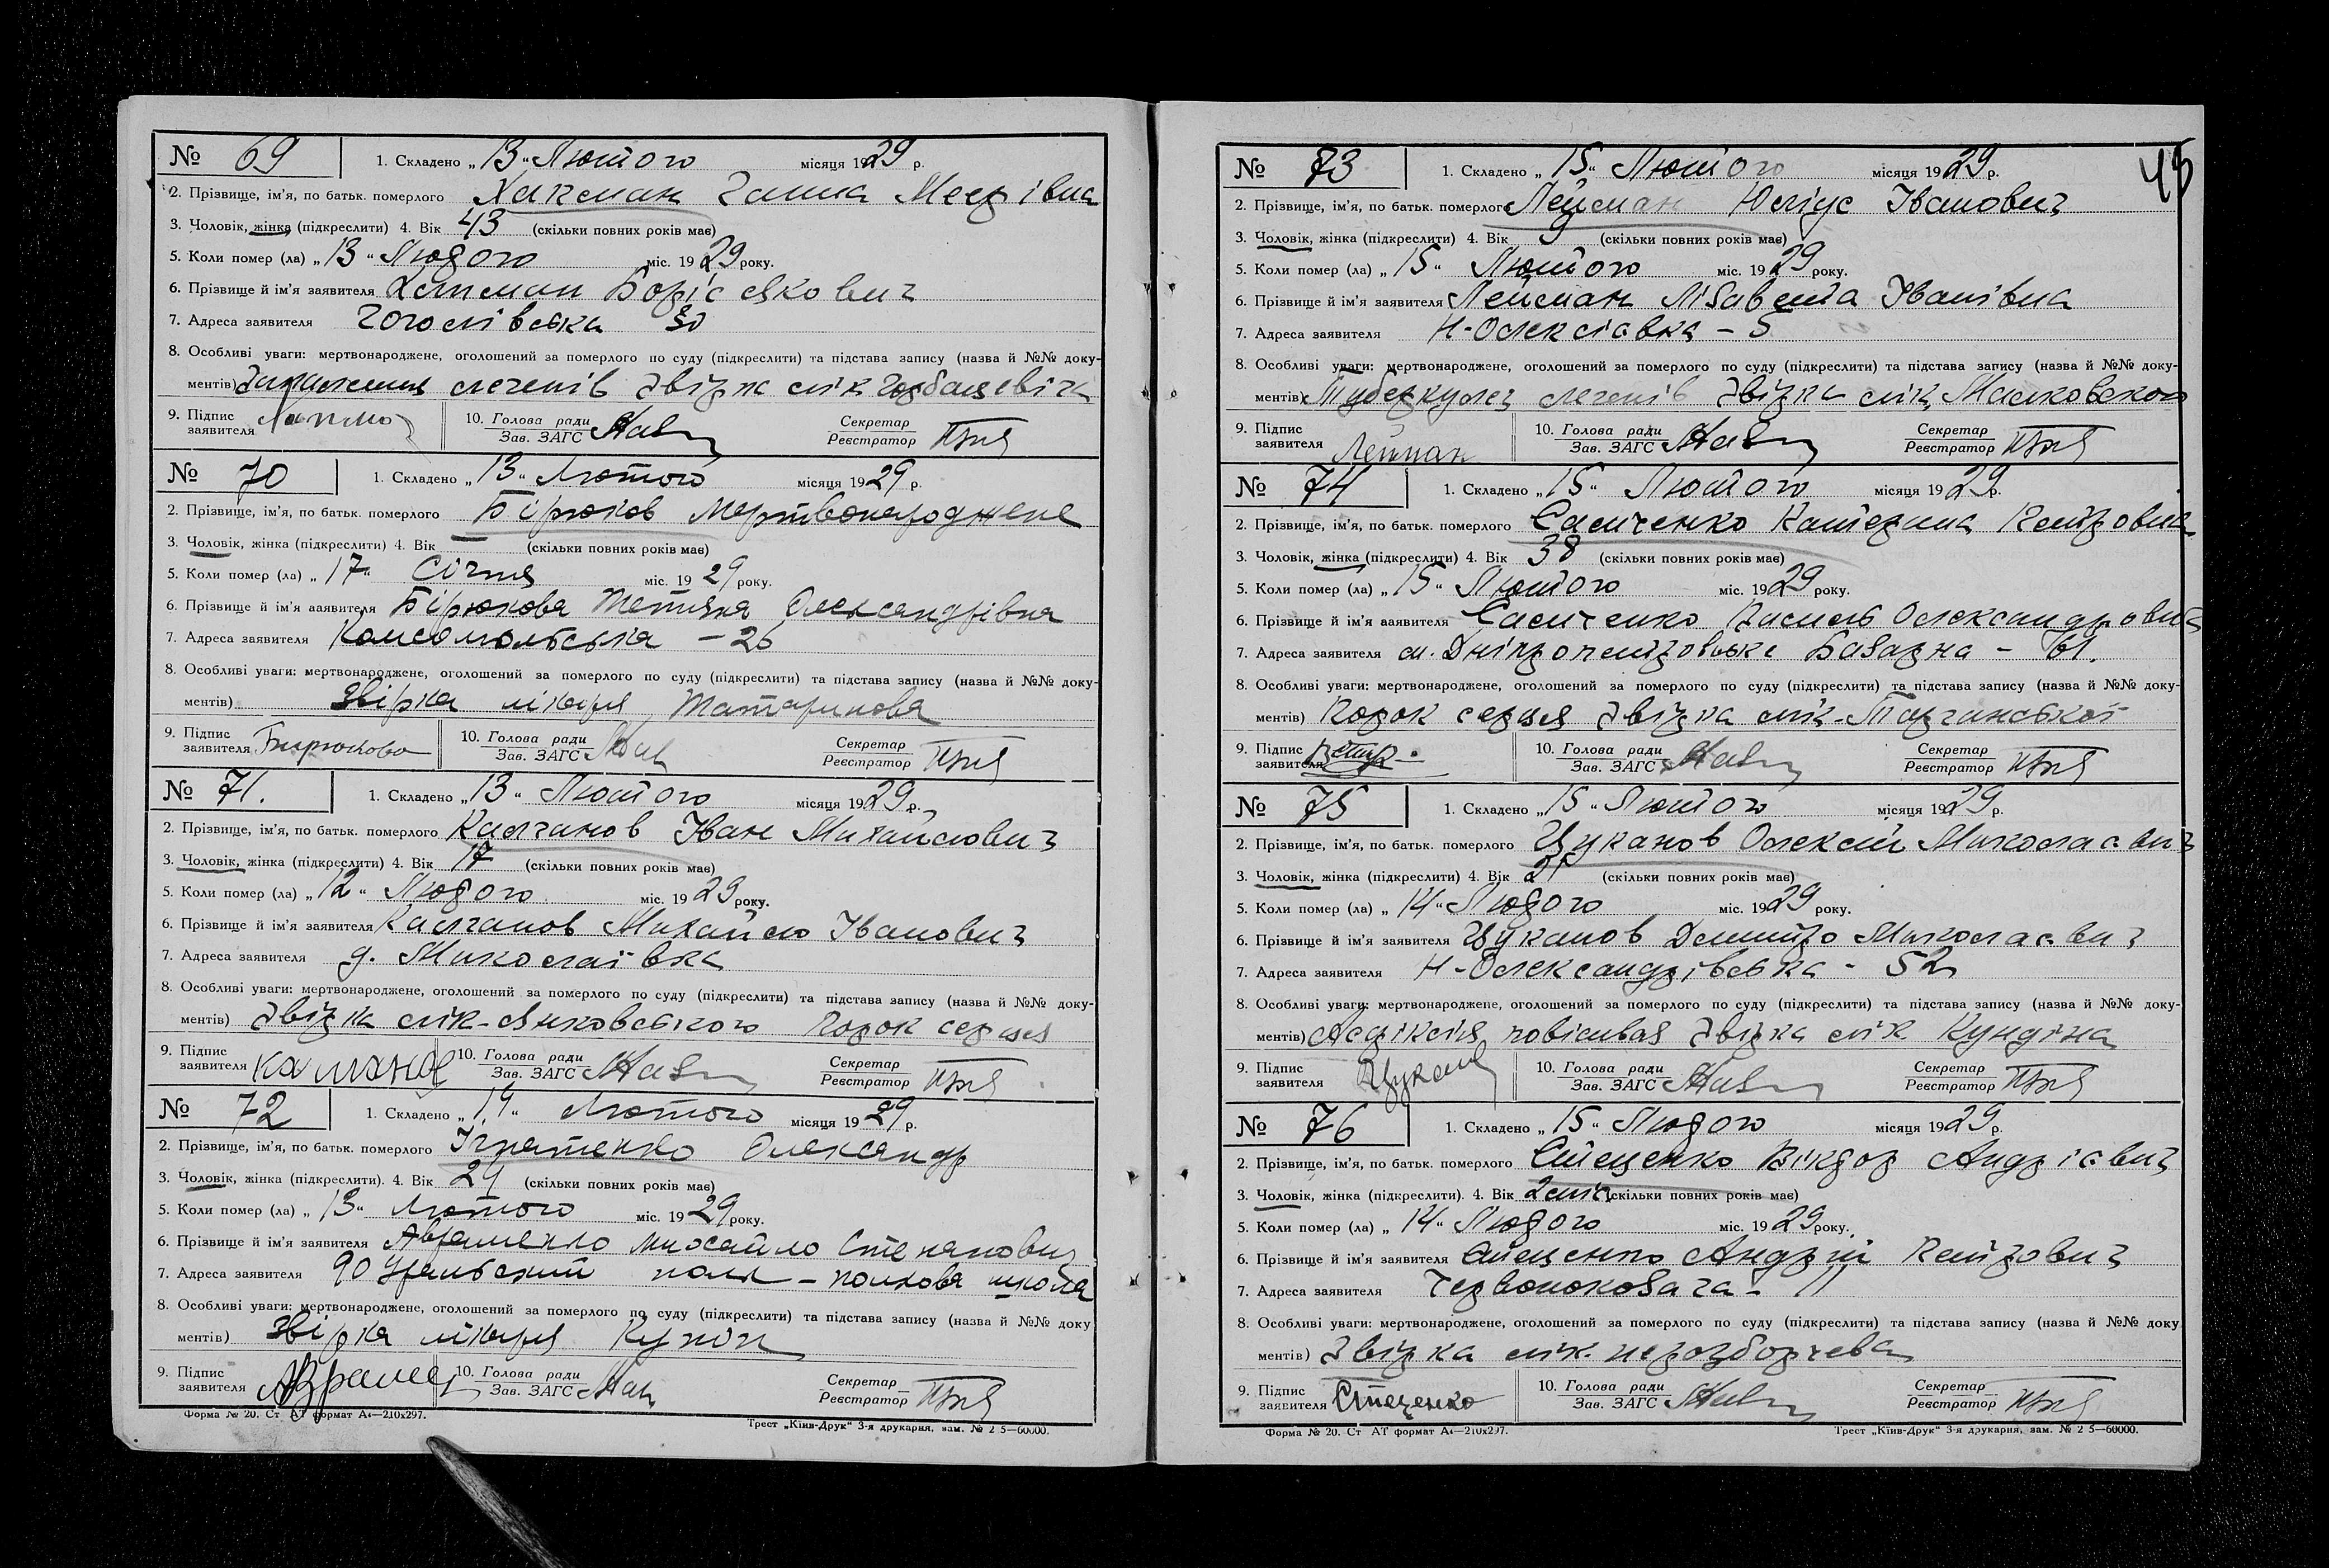 № 69 1. Складено „13“ Лютого місяця 1929 р.
2. Прізвище, ім'я, по батьк. померлого Ханна
3. Чоловік, жінка (підкреслити) 4. Вік 43 (скільки повних років має)
5. Коли помер (ла) „13“ Людого міс. 1929 року.
6. Прізвище й ім'я заявителя Боріс
7. Адреса заявителя 30
8. Особливі уваги: мертвонароджене, оголошений за померлого по суду (підкреслити) та підстава запису (назва й №№ доку-
ментів) Запалення легенів звірка лік
9. Підпис заявителя 10. Голова ради Зав. ЗАГС Секретар Реєстратор
№ 70 1. Складено „13“ Лютого місяця 1929 р.
2. Прізвище, ім'я, по батьк. померлого Бірюков Мертвонароджене
3. Чоловік, жінка (підкреслити) 4. Вік (скільки повних років має)
5. Коли помер (ла) „17“ Січня міс. 1929 року.
6. Прізвище й ім'я заявителя Бірюкова Тетяна Олександрівна
7. Адреса заявителя Комсомольська - 26
8. Особливі уваги: мертвонароджене, оголошений за померлого по суду (підкреслити) та підстава запису (назва й №№ доку-
ментів) Звірка лікаря Татаринова
9. Підпис заявителя Бирюкова 10. Голова ради Зав. ЗАГС Секретар Реєстратор
№ 71. 1. Складено „13“ Лютого місяця 1929 р.
2. Прізвище, ім'я, по батьк. померлого Калганов Іван Михайлович
3. Чоловік, жінка (підкреслити) 4. Вік 17 (скільки повних років має)
5. Коли помер (ла) „12“ Людого міс. 1929 року.
6. Прізвище й ім'я заявителя Калганов Михайло Іванович
7. Адреса заявителя д. Миколаївка
8. Особливі уваги: мертвонароджене, оголошений за померлого по суду (підкреслити) та підстава запису (назва й №№ доку-
ментів) Звірка лік. Янковського Порок серця
9. Підпис заявителя 10. Голова ради Зав. ЗАГС Секретар Реєстратор
№ 72 1. Складено „14“ Лютого місяця 1929 р.
2. Прізвище, ім'я, по батьк. померлого Ігнатенко Олександр
3. Чоловік, жінка (підкреслити). 4. Вік 24 (скільки повних років має)
5. Коли помер (ла) „13“ Лютого міс. 1929 року.
6. Прізвище й ім'я заявителя Авраменко Михайло Степанович
7. Адреса заявителя 90 Уральский полк - полкова школа
8. Особливі уваги: мертвонароджене, оголошений за померлого по суду (підкреслити) та підстава запису (назва й №№ доку
ментів) Звірка лікаря
9. Підпис заявителя 10. Голова ради Зав. ЗАГС Секретар Реєстратор
Форма № 20. Ст АТ формат А4—210х297. Трест „Київ-Друк“ 3-я друкарня, зам. № 2 5—60000.
45
№ 73 1. Складено „15“ Лютого місяця 1929 р.
2. Прізвище, ім'я, по батьк. померлого Лейман Юліус Іванович
3. Чоловік, жінка (підкреслити) 4. Вік 9 (скільки повних років має)
5. Коли помер (ла) „15“ Лютого міс. 1929 року.
6. Прізвище й ім'я заявителя Лейман Лізавета Іванівна
7. Адреса заявителя - 5
8. Особливі уваги: мертвонароджене, оголошений за померлого по суду (підкреслити) та підстава запису (назва й №№ доку-
ментів) Туберкулез легенів Звірка лік.
9. Підпис заявителя Лейман 10. Голова ради Зав. ЗАГС Секретар Реєстратор
№ 74 1. Складено „15“ Лютого місяця 1929 р.
2. Прізвище, ім'я, по батьк. померлого Катерина Петровна
3. Чоловік, жінка (підкреслити) 4. Вік 38 (скільки повних років має)
5. Коли помер (ла) „15“ Лютого міс. 1929 року.
6. Прізвище й ім'я заявителя Василь Олександрович
7. Адреса заявителя Базарна -
8. Особливі уваги: мертвонароджене, оголошений за померлого по суду (підкреслити) та підстава запису (назва й №№ доку-
ментів) Порок серця Звірка лік.
9. Підпис заявителя 10. Голова ради Зав. ЗАГС Секретар Реєстратор
№ 75 1. Складено „15“ Лютого місяця 1929 р.
2. Прізвище, ім'я, по батьк. померлого Цуканов Олексій Миколаєвич
3. Чоловік, жінка (підкреслити) 4. Вік 21 (скільки повних років має)
5. Коли помер (ла) „14“ Людого міс. 1929 року.
6. Прізвище й ім'я заявителя Цуканов Дмитро Миколаєвич
7. Адреса заявителя Н-Олександрівська - 52
8. Особливі уваги: мертвонароджене, оголошений за померлого по суду (підкреслити) та підстава запису (назва й №№ доку-
ментів) Звірка лік Кундіна
9. Підпис заявителя 10. Голова ради Зав. ЗАГС Секретар Реєстратор
№ 76 1. Складено „15“ Людого місяця 1929 р.
2. Прізвище, ім'я, по батьк. померлого Стеценко Віктор Андрієвич
3. Чоловік, жінка (підкреслити). 4. Вік (скільки повних років має)
5. Коли помер (ла) „14“ Людого міс. 1929 року.
6. Прізвище й ім'я заявителя Стеценко Андрій Петрович
7. Адреса заявителя Червонокозача - 11
8. Особливі уваги: мертвонароджене, оголошений за померлого по суду (підкреслити) та підстава запису (назва й №№ доку
ментів) Звірка лік. нерозборчева
9. Підпис заявителя Стеценко 10. Голова ради Зав. ЗАГС Секретар Реєстратор
Форма № 20. Ст АТ формат А4—210х297. Трест „Київ-Друк“ 3-я друкарня, зам. № 2 5—60000.